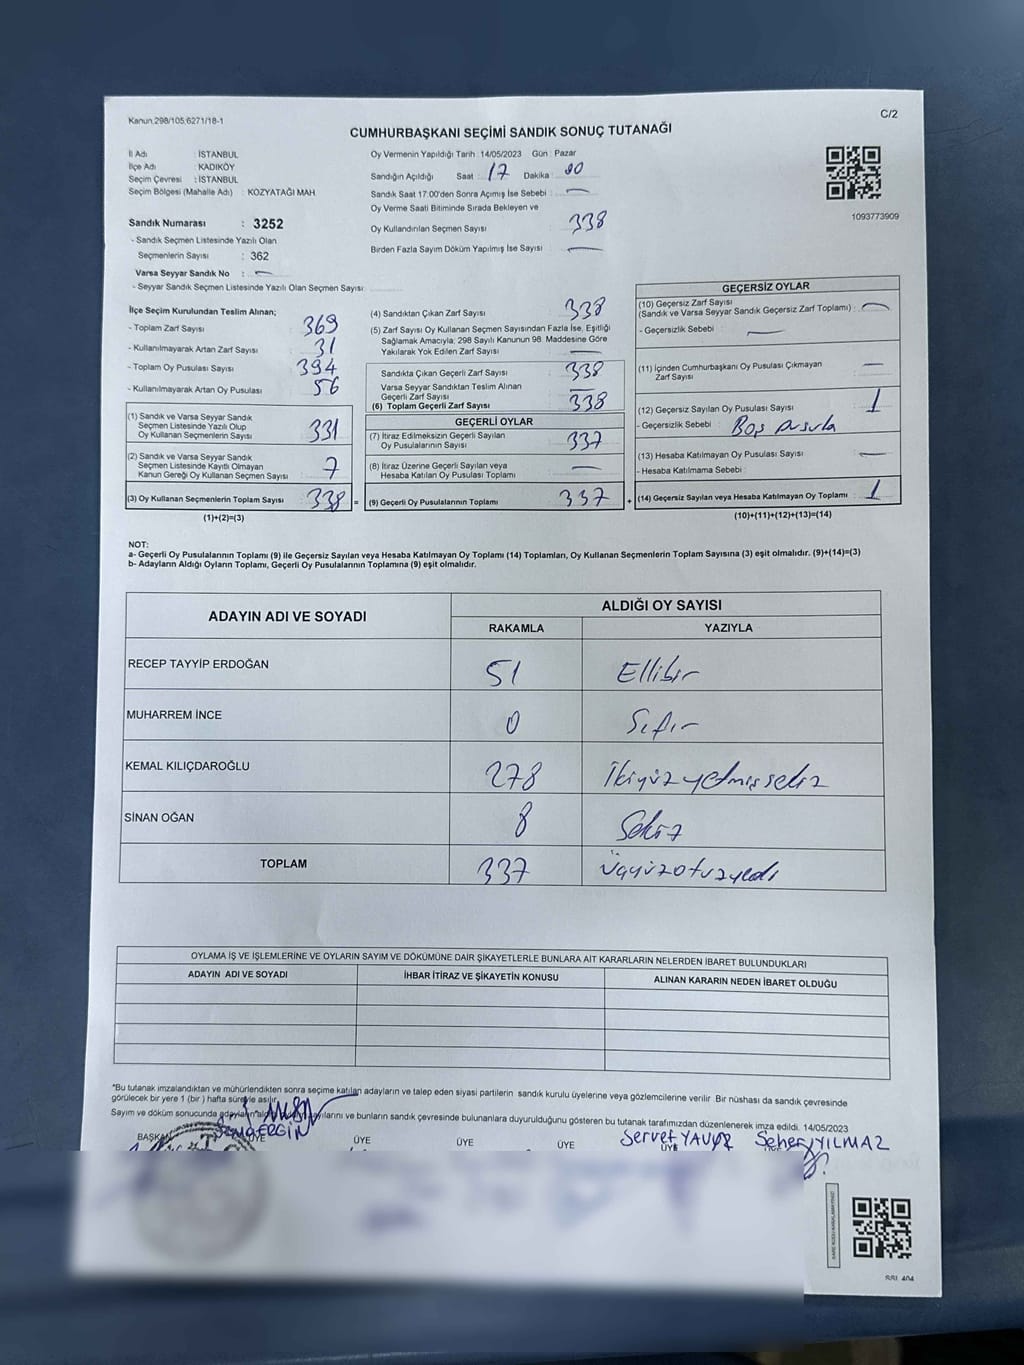 Kanun.298/105;6271/18-1
C/2
CUMHURBAŞKANI SEÇİMİ SANDIK SONUÇ TUTANAĞI
İl Adı : İSTANBUL
İlçe Adı : KADIKÖY
Seçim Çevresi : İSTANBUL
Seçim Bölgesi (Mahalle Adı) : KOZYATAĞI MAH
Sandık Numarası : 3252
- Sandık Seçmen Listesinde Yazılı Olan
Seçmenlerin Sayısı : 362
Varsa Seyyar Sandık No : —
- Seyyar Sandık Seçmen Listesinde Yazılı Olan Seçmen Sayısı
Oy Vermenin Yapıldığı Tarih : 14/05/2023 Gün : Pazar
Sandığın Açıldığı Saat : 17 Dakika :
Sandık Saat 17:00'den Sonra Açımış İse Sebebi : —
Oy Verme Saati Bitiminde Sırada Bekleyen ve
Oy Kullandırılan Seçmen Sayısı : 338
Birden Fazla Sayım Döküm Yapılmış İse Sayısı : —
1093773909
İlçe Seçim Kurulundan Teslim Alınan;
- Toplam Zarf Sayısı : 369
- Kullanılmayarak Artan Zarf Sayısı : 31
- Toplam Oy Pusulası Sayısı : 394
- Kullanılmayarak Artan Oy Pusulası : 56
(1) Sandık ve Varsa Seyyar Sandık
Seçmen Listesinde Yazılı Olup
Oy Kullanan Seçmenlerin Sayısı : 331
(2) Sandık ve Varsa Seyyar Sandık
Seçmen Listesinde Kayıtlı Olmayan
Kanun Gereği Oy Kullanan Seçmen Sayısı : 7
(3) Oy Kullanan Seçmenlerin Toplam Sayısı : 338 =
(1)+(2)=(3)
(4) Sandıktan Çıkan Zarf Sayısı : 338
(5) Zarf Sayısı Oy Kullanan Seçmen Sayısından Fazla İse, Eşitliği
Sağlamak Amacıyla; 298 Sayılı Kanunun 98. Maddesine Göre
Yakılarak Yok Edilen Zarf Sayısı : —
Sandıkta Çıkan Geçerli Zarf Sayısı : 338
Varsa Seyyar Sandıktan Teslim Alınan
Geçerli Zarf Sayısı : —
(6) Toplam Geçerli Zarf Sayısı : 338
GEÇERLİ OYLAR
(7) İtiraz Edilmeksizin Geçerli Sayılan
Oy Pusulalarının Sayısı : 337
(8) İtiraz Üzerine Geçerli Sayılan veya
Hesaba Katılan Oy Pusulası Toplamı : —
(9) Geçerli Oy Pusulalarının Toplamı : 337 +
GEÇERSİZ OYLAR
(10) Geçersiz Zarf Sayısı
(Sandık ve Varsa Seyyar Sandık Geçersiz Zarf Toplamı) : —
- Geçersizlik Sebebi : —
(11) İçinden Cumhurbaşkanı Oy Pusulası Çıkmayan
Zarf Sayısı : —
(12) Geçersiz Sayılan Oy Pusulası Sayısı : 1
- Geçersizlik Sebebi : Boş pusula
(13) Hesaba Katılmayan Oy Pusulası Sayısı : —
- Hesaba Katılmama Sebebi :
(14) Geçersiz Sayılan veya Hesaba Katılmayan Oy Toplamı : 1
(10)+(11)+(12)+(13)=(14)
NOT:
a- Geçerli Oy Pusulalarının Toplamı (9) ile Geçersiz Sayılan veya Hesaba Katılmayan Oy Toplamı (14) Toplamları, Oy Kullanan Seçmenlerin Toplam Sayısına (3) eşit olmalıdır. (9)+(14)=(3)
b- Adayların Aldığı Oyların Toplamı, Geçerli Oy Pusulalarının Toplamına (9) eşit olmalıdır.
ADAYIN ADI VE SOYADI
ALDIĞI OY SAYISI
RAKAMLA YAZIYLA
RECEP TAYYİP ERDOĞAN 51 Ellibir
MUHARREM İNCE 0 Sıfır
KEMAL KILIÇDAROĞLU 278 İkiyüzyetmişsekiz
SİNAN OĞAN 8 Sekiz
TOPLAM 337 Üçyüzotuzyedi
OYLAMA İŞ VE İŞLEMLERİNE VE OYLARIN SAYIM VE DÖKÜMÜNE DAİR ŞİKAYETLERLE BUNLARA AİT KARARLARIN NELERDEN İBARET BULUNDUKLARI
ADAYIN ADI VE SOYADI İHBAR İTİRAZ VE ŞİKAYETİN KONUSU ALINAN KARARIN NEDEN İBARET OLDUĞU
*Bu tutanak imzalandıktan ve mühürlendikten sonra seçime katılan adayların ve talep eden siyasi partilerin sandık kurulu üyelerine veya gözlemcilerine verilir. Bir nüshası da sandık çevresinde
görülecek bir yere 1 (bir ) hafta süreyle asılır.
Sayım ve döküm sonucunda adayların sayılarını ve bunların sandık çevresinde bulunanlara duyurulduğunu gösteren bu tutanak tarafımızdan düzenlenerek imza edildi. 14/05/2023
ERGİN Servet YAVUZ Seher YILMAZ
BAŞKAN ÜYE ÜYE ÜYE ÜYE ÜYE